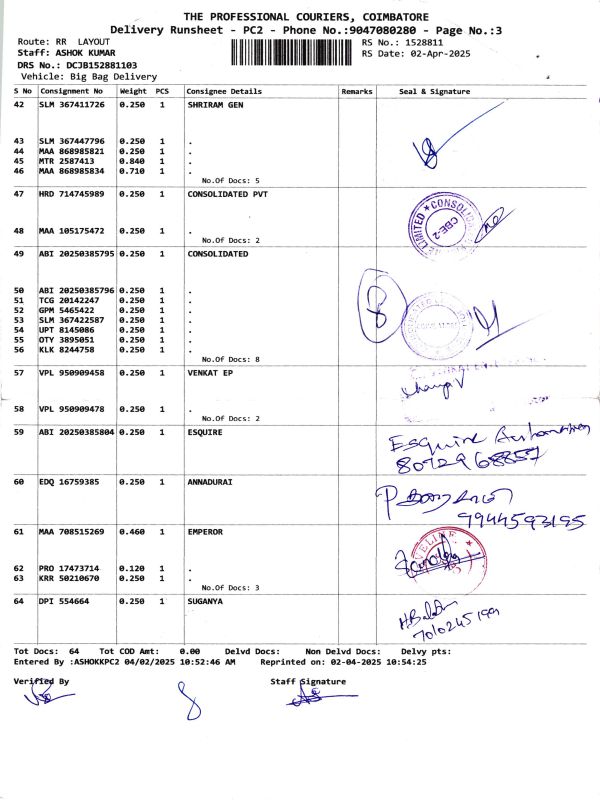 THE PROFESSIONAL COURIERS, COIMBATORE
Delivery Runsheet - PC2 - Phone No.:9047080280 - Page No.:3
Route: RR LAYOUT RS No.: 1528811
Staff: ASHOK KUMAR RS Date: 02-Apr-2025
DRS No.: DCJB152881103
Vehicle: Big Bag Delivery
S No Consignment No Weight PCS Consignee Details Remarks Seal & Signature
42 SLM 367411726 0.250 1 SHRIRAM GEN
43 SLM 367447796 0.250 1 .
44 MAA 868985821 0.250 1 .
45 MTR 2587413 0.840 1 .
46 MAA 868985834 0.710 1 .
No.Of Docs: 5
47 HRD 714745989 0.250 1 CONSOLIDATED PVT
48 MAA 105175472 0.250 1 .
No.Of Docs: 2
CBE-2
LIMITED * CONSOLI
49 ABI 20250385795 0.250 1 CONSOLIDATED
50 ABI 20250385796 0.250 1 .
51 TCG 20142247 0.250 1 .
52 GPM 5465422 0.250 1 .
53 SLM 367422587 0.250 1 .
54 UPT 8145086 0.250 1 .
55 OTY 3895051 0.250 1 .
56 KLK 8244758 0.250 1 .
No.Of Docs: 8
8
57 VPL 950909458 0.250 1 VENKAT EP
58 VPL 950909478 0.250 1 .
No.Of Docs: 2
59 ABI 20250385804 0.250 1 ESQUIRE
Esquire
60 EDQ 16759385 0.250 1 ANNADURAI
9944593195
61 MAA 708515269 0.460 1 EMPEROR
62 PRO 17473714 0.120 1 .
63 KRR 50210670 0.250 1 .
No.Of Docs: 3
64 DPI 554664 0.250 1 SUGANYA
7010245199
Tot Docs: 64 Tot COD Amt: 0.00 Delvd Docs: Non Delvd Docs: Delvy pts:
Entered By :ASHOKKPC2 04/02/2025 10:52:46 AM Reprinted on: 02-04-2025 10:54:25
Verified By Staff Signature